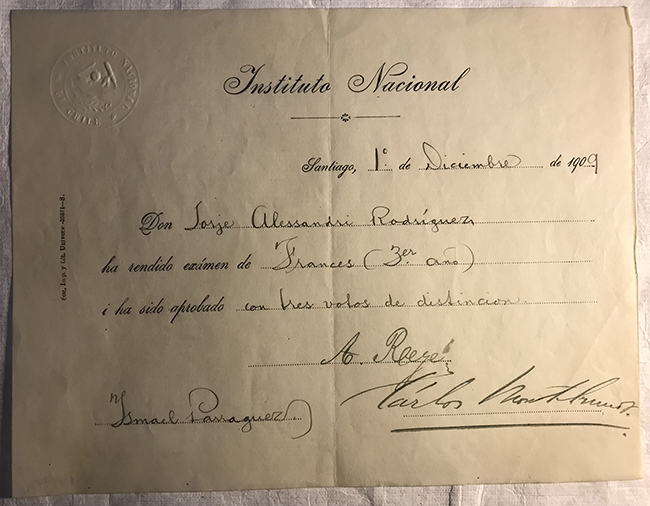 INSTITUTO NACIONAL
DE CHILE
Instituto Nacional
Santiago, 1º de Diciembre de 1909
Don Jorje Alessandri Rodríguez
ha rendido exámen de Frances (3er año)
i ha sido aprobado con tres votos de distincion.
A. Reyes
Ismael Parraguez
Carlos
Soc. Imp. y Lit. Universo